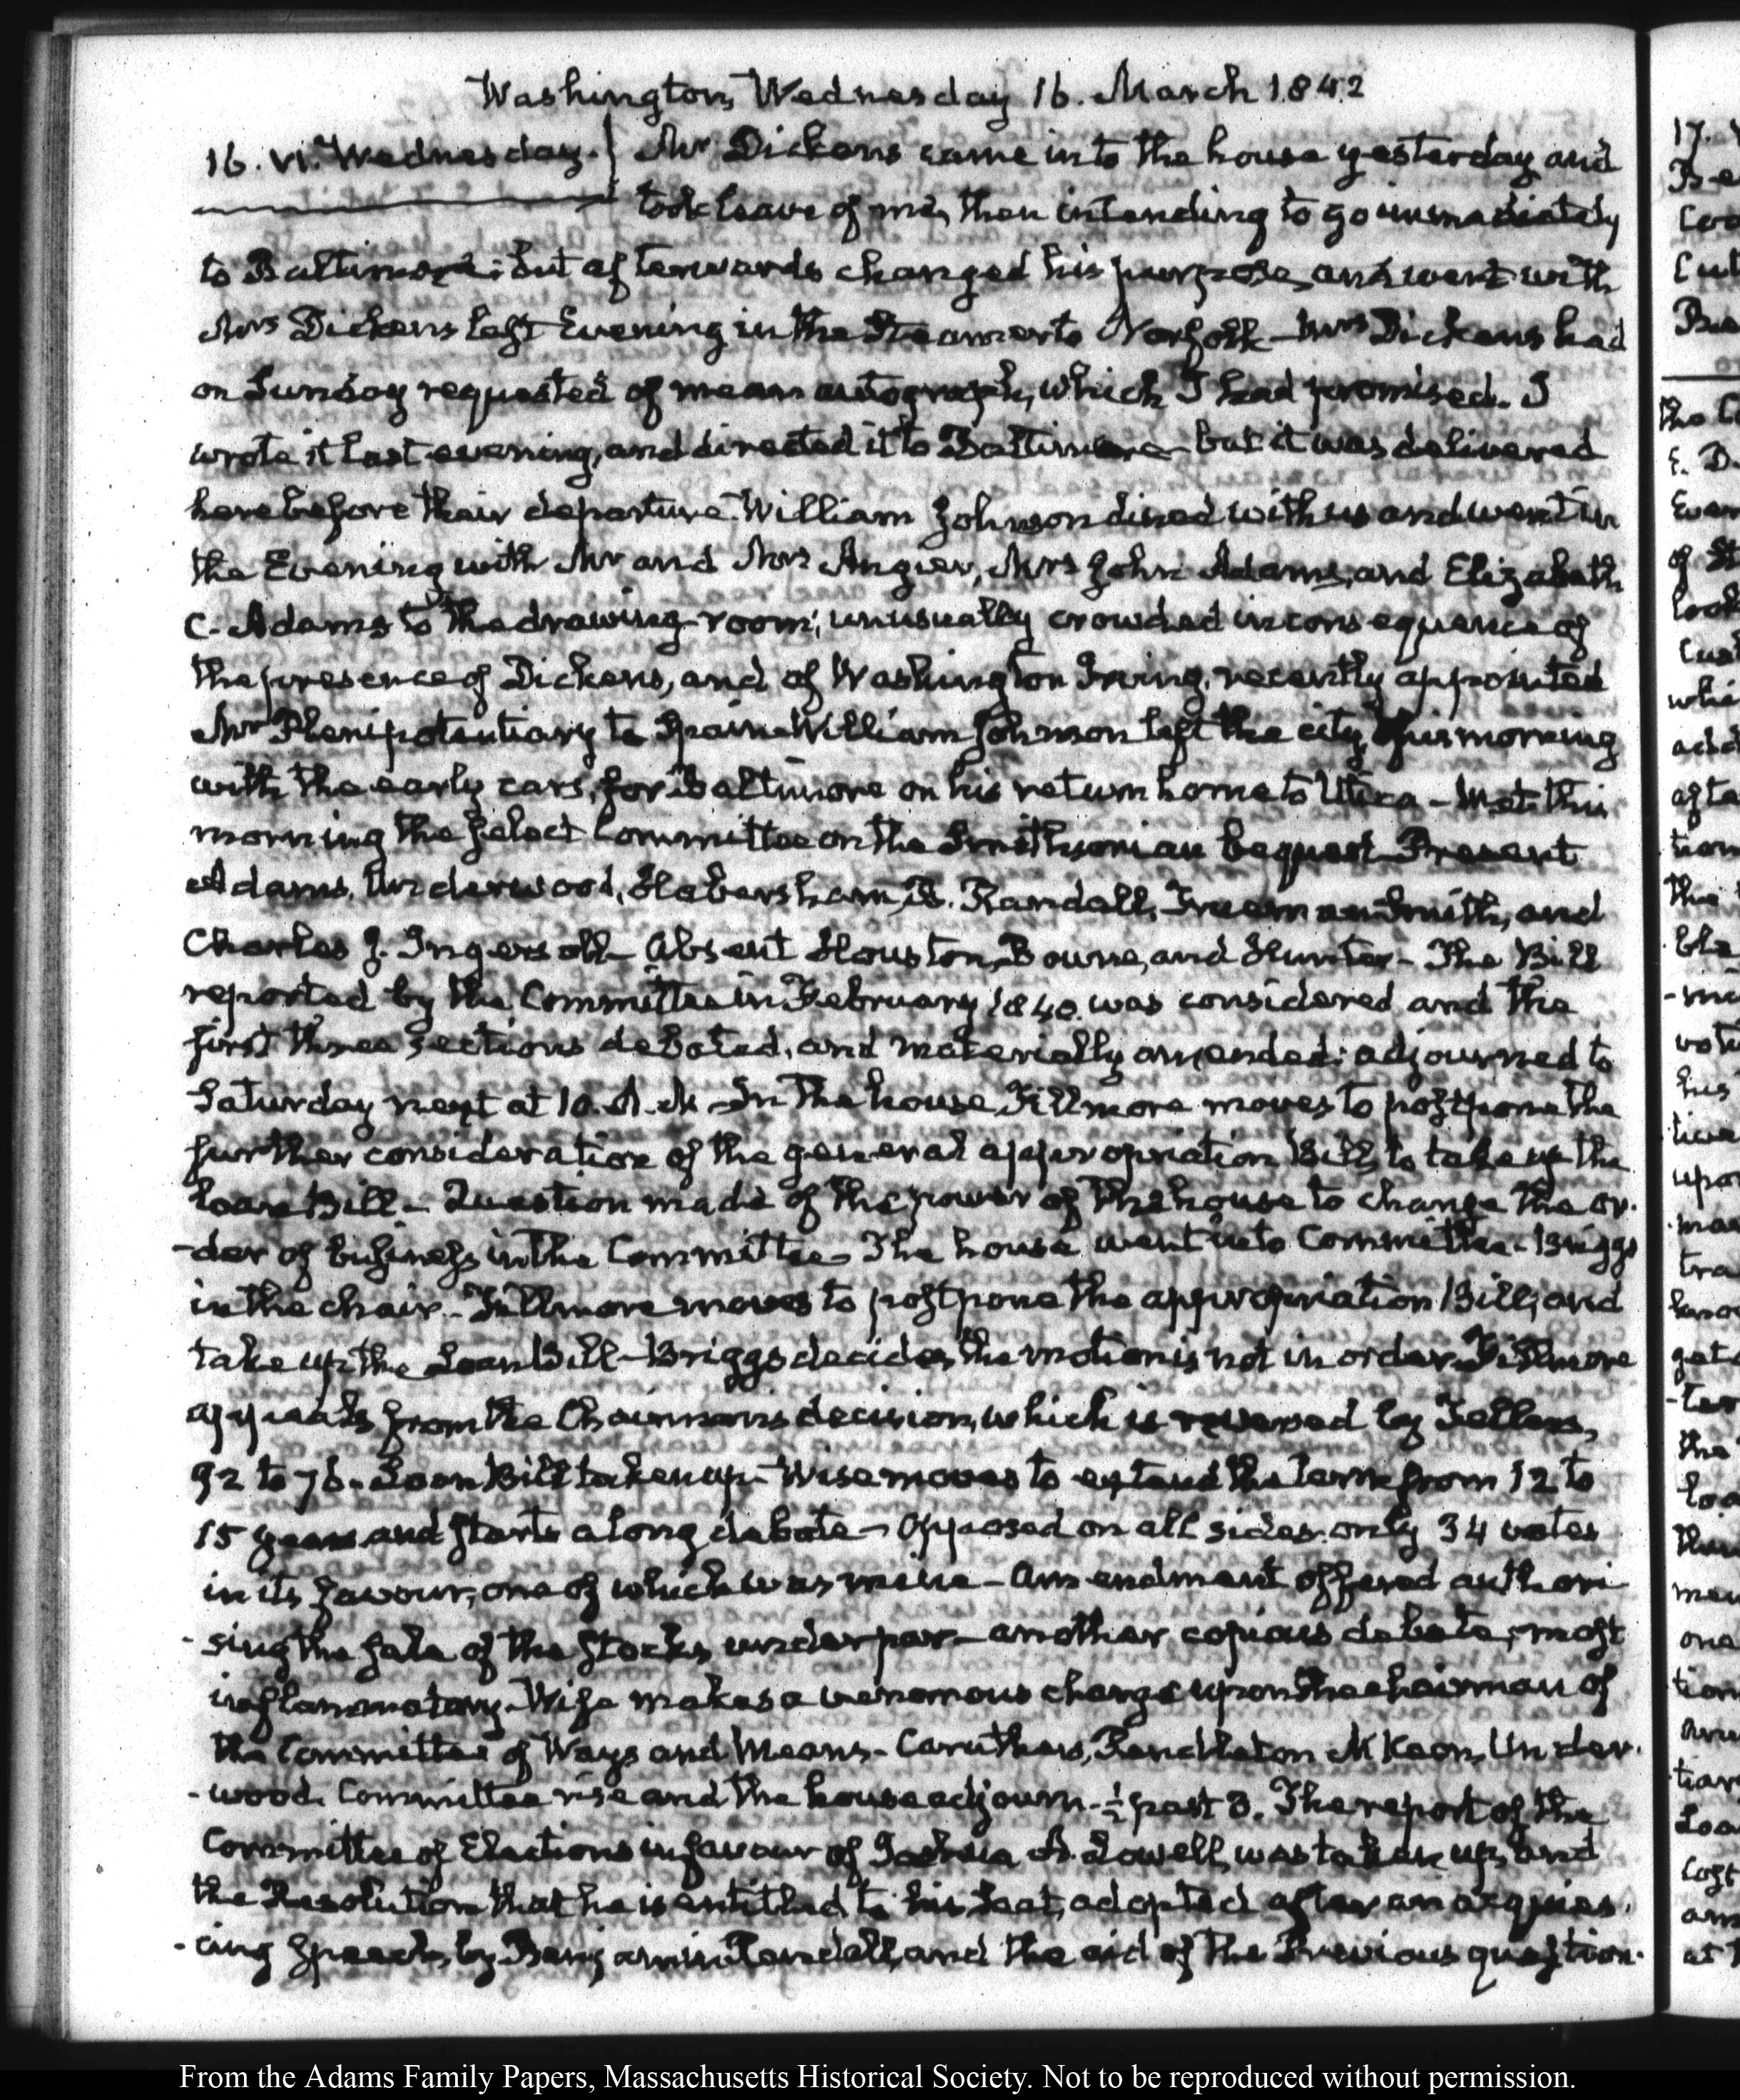 Washington, Wednesday 16. March 1842
16. VI. Wednesday. Mr Dickens came into the house yesterday and
took leave of me, then intending to go immediately
to Baltimore: but afterwards changed his purpose, and went with
Mrs Dickens last Evening in the Steamer to Norfolk - Mrs Dickens had
on Sunday requested of me an autograph, which I had promised. I
wrote it last evening, and directed it to Baltimore - but it was delivered
here before their departure. William Johnson dined with us and went in
the Evening with Mr and Mrs Angier, Mrs John Adams, and Elizabeth
C. Adams to the drawing-room; unusually crowded in consequence of
the presence of Dickens, and of Washington Irving, recently appointed
Mr Plenipotentiary to Spain. William Johnson left the city this morning
with the early cars, for Baltimore on his return home to Utica - Met this
morning the Select Committee on the Smithsonian bequest. Present
Adams, Underwood, Habersham, B. Randall, Truman Smith, and
Charles J. Ingersoll - Absent Houston, Bowne, and Hunter - The Bill
reported by the Committee in February 1840. was considered and the
first three sections debated, and materially amended: adjourned to
Saturday next at 10. A.M - In the house Fillmore moves to postpone the
further consideration of the general appropriation Bill, to take up the
loan Bill - Question made of the power of the house to change the or-
-der of business in the Committee - The house went into Committee - Briggs
in the chair - Fillmore moves to postpone the appropriation Bill, and
take up the Loan Bill - Briggs decides, the motion is not in order. Fillmore
appeals from the Chairman's decision, which is reversed by Tellers,
92 to 76. Loan Bill taken up - Wise moves to extend the term from 12 to
15 years and starts a long debate - Opposed on all sides. only 34 votes
in its favour, one of which was mine - Amendment offered authori-
-sing the sale of the stocks under par - another copious debate, most
inflammatory - Wise makes a venomous charge upon the chairman of
the Committee of Ways and Means - Caruthers, Pendleton M'Keon, Under-
-wood. Committee rise and the house adjourn - ½ past 3. The report of the
Committee of Elections in favour of Joshua A. Lowell, was taken up, and
the Resolution that he is entitled to his Seat, adopted after an acquies-
-cing Speech, by Benjamin Randall, and the aid of the Previous question.
From the Adams Family Papers, Massachusetts Historical Society. Not to be reproduced without permission.